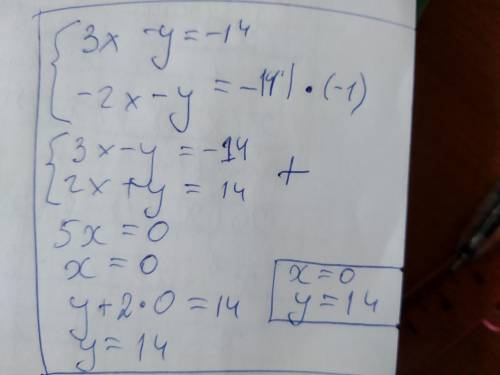 { 3x - y = -14
-2x - y = -14 | · (-1)
{ 3x - y = -14
2x + y = 14 +
5x = 0
x = 0
y + 2 · 0 = 14
y = 14
x = 0
y = 14